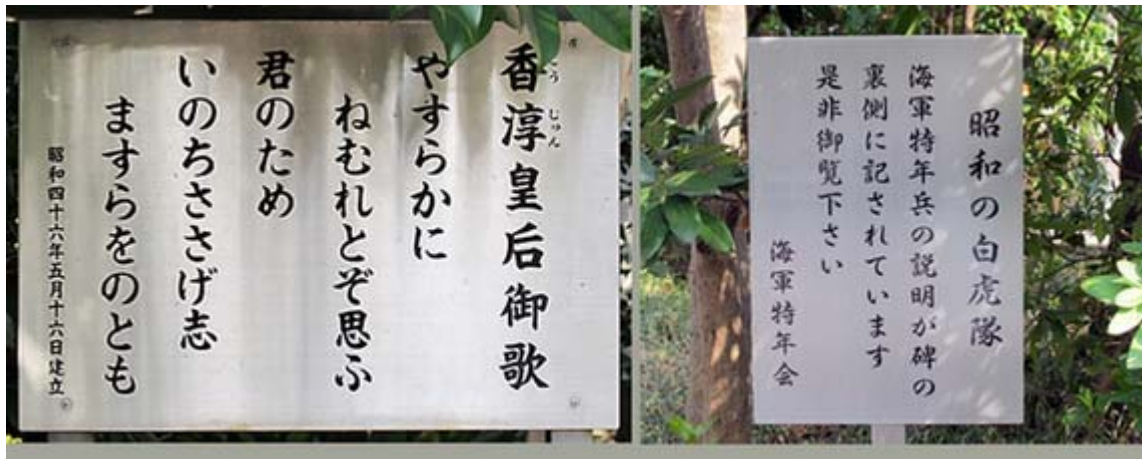 香淳皇后御歌
こうじゅん
やすらかに
ねむれとぞ思ふ
君のため
いのちささげ志
ますらをのとも
昭和四十六年五月十六日建立
昭和の白虎隊
海軍特年兵の説明が碑の
裏側に記されています
是非御覧下さい
海軍特年会